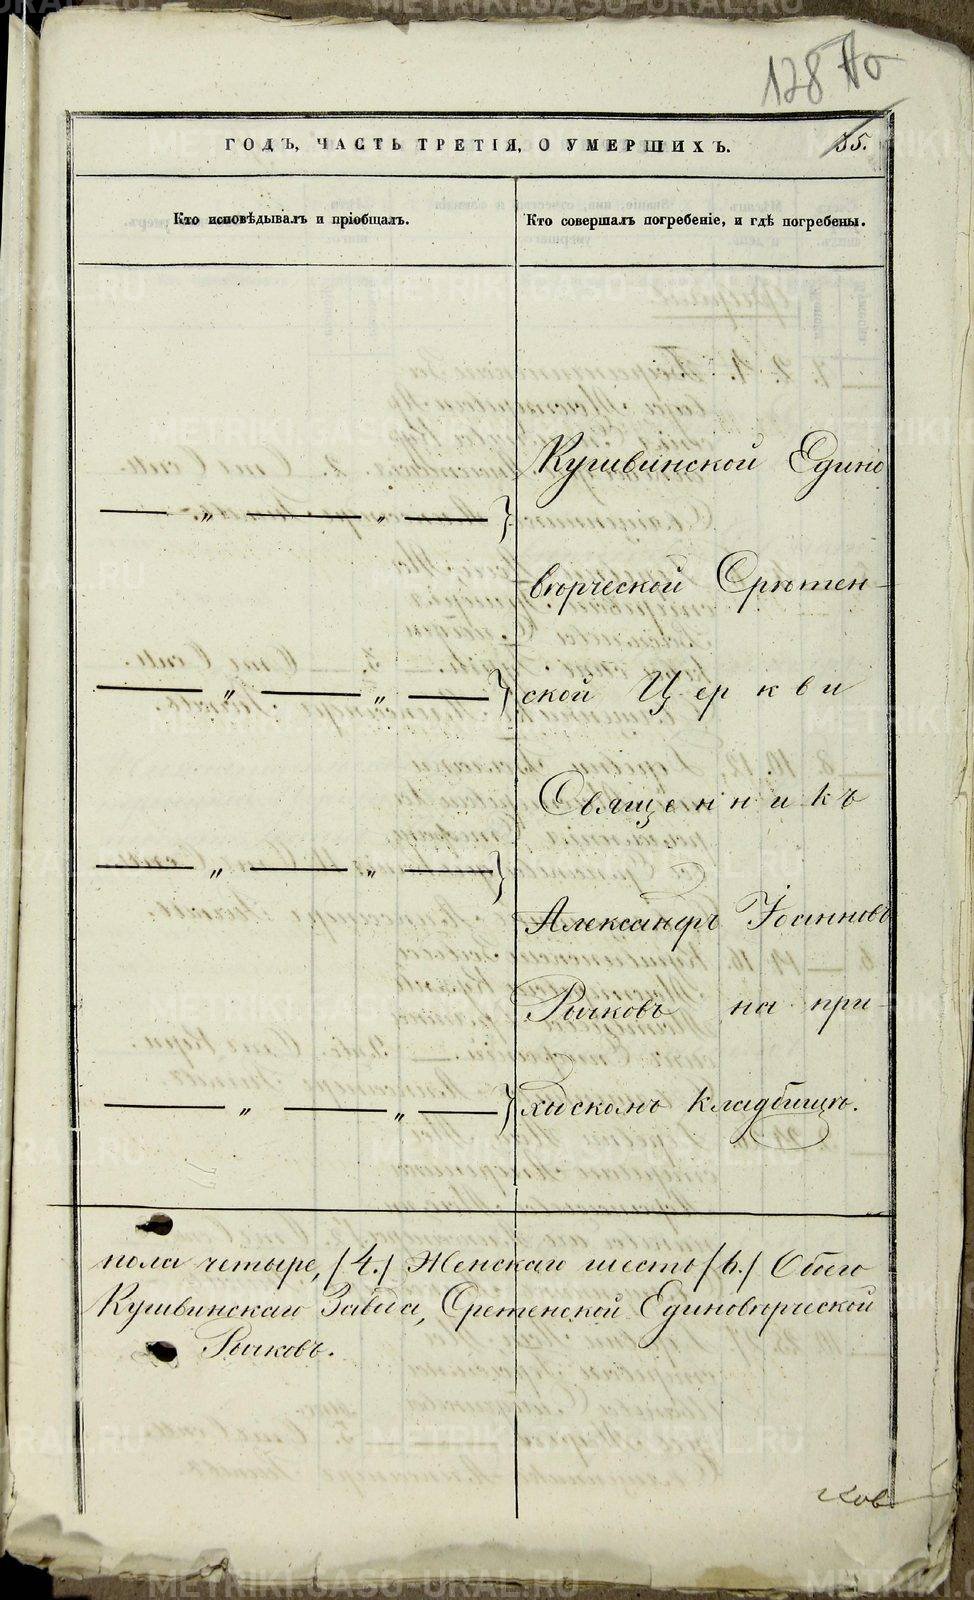 128
35.
ГОДЪ, ЧАСТЬ ТРЕТІЯ, О УМЕРШИХЪ.
Кто исповѣдывалъ и пріобщалъ.
Кто совершалъ погребеніе, и гдѣ погребены.
Кушвинской Едино
вѣрческой Срѣтен-
ской Церкви
Священникъ
Александръ Іоанновъ
Рычковъ на при-
ходскомъ кладбищѣ.
пола четыре, /4./ Женскаго шесть /6./ Обоего
Кушвинскаго Завода, Сретенской Единовѣрческой
Рычковъ.
ковъ
METRIKI.GASO-URAL.RU